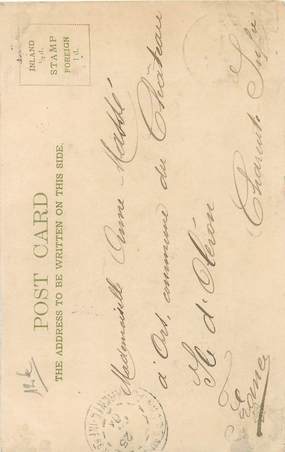 POST CARD
THE ADDRESS TO BE WRITTEN ON THIS SIDE.
INLAND
½d.
STAMP
FOREIGN
1d.
Mademoiselle Anne-Mabbé
à Ors, commune du Château
Ile d'Oléron
Charente Infre
France